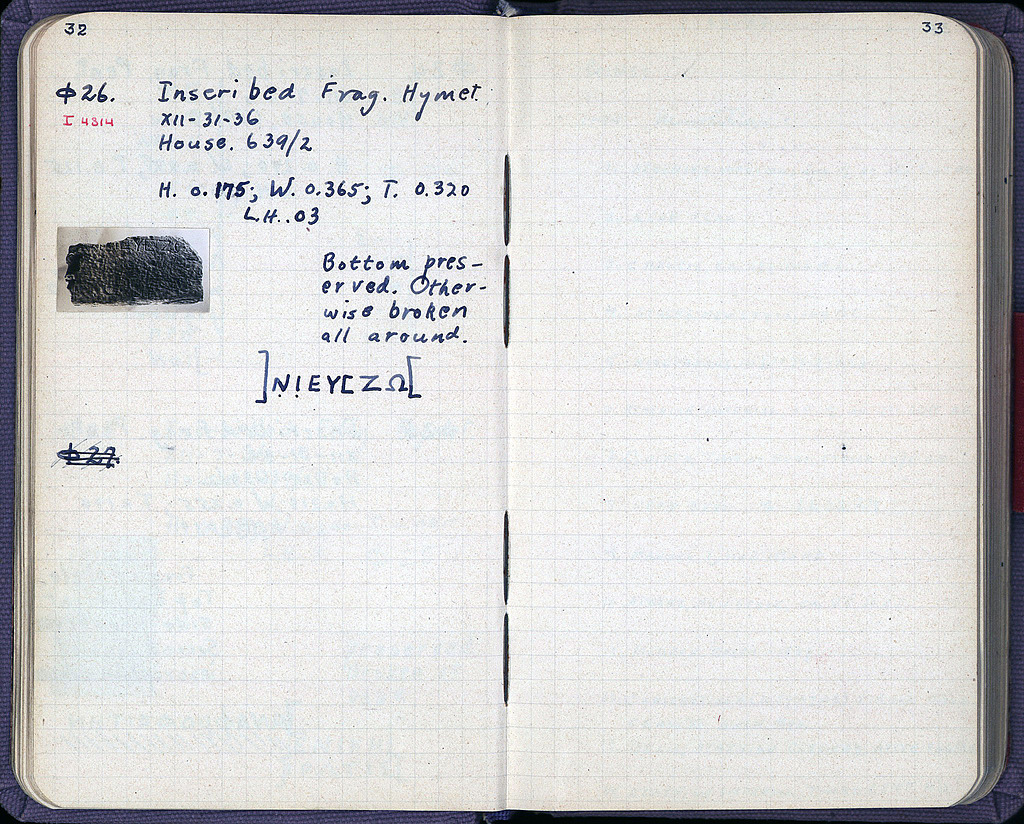 32
33
Φ26. Inscribed Frag. Hymet.
I 4314
XII-31-36
House. 639/2
H. 0.175; W. 0.365; T. 0.320
L.H. .03
Bottom pres-
erved. Other-
wise broken
all around.
]Ṇ!ΕΥ[ΖΩ[
Φ27.